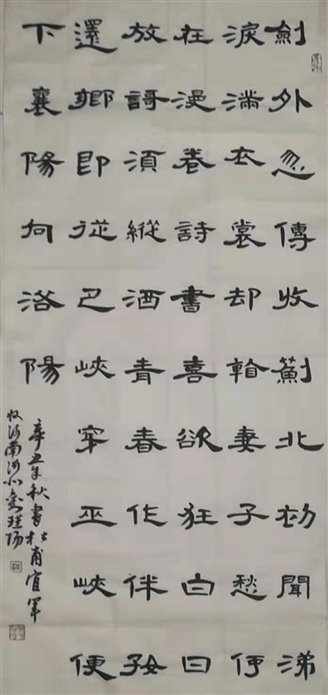 劍外忽傳收薊北初聞涕
淚滿衣裳却看妻子愁何
在漫卷詩書喜欲狂白日
放謌須縱酒青春作伴好
還鄉即從巴峽穿巫峽便
下襄陽向洛陽
辛丑年秋書杜甫官軍
收河南河北